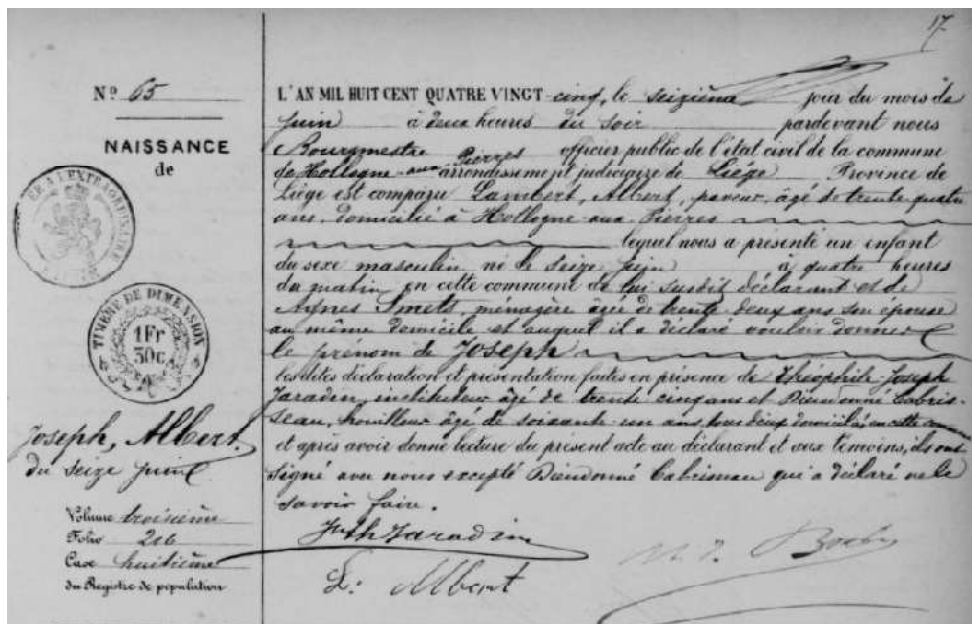 17
Nº 65
NAISSANCE
de
TIMBRE DE DIMENSION
1Fr
30c
Joseph, Albert.
du seize juin
Volume troisième
Folio 216
Case huitième
du Registre de population
L'AN MIL HUIT CENT QUATRE VINGT cinq, le seizième jour du mois de
juin à deux heures du soir pardevant nous
Bourgmestre officier public de l'état civil de la commune
de Hollogne-aux-Pierres arrondissement judiciaire de Liège Province de
Liège est comparu Lambert, Albert, paveur, âgé de trente quatre
ans, domicilié à Hollogne-aux-Pierres
lequel nous a présenté un enfant
du sexe masculin né le seize juin à quatre heures
du matin en cette commune de lui susdit déclarant et de
Agnes Smets, ménagère âgée de trente deux ans son épouse
au même domicile et auquel il a déclaré vouloir donner
le prénom de Joseph
les dites déclaration et présentation faites en présence de Théophile-Joseph
Jaradin, instituteur âgé de trente cinq ans et Dieudonné
houilleur âgé de soixante-un ans, tous deux domiciliés en cette
et après avoir donné lecture du présent acte au déclarant et aux témoins, ils ont
signé avec nous excepté Dieudonné qui a déclaré ne le
savoir faire.
Jaradin
L. Albert